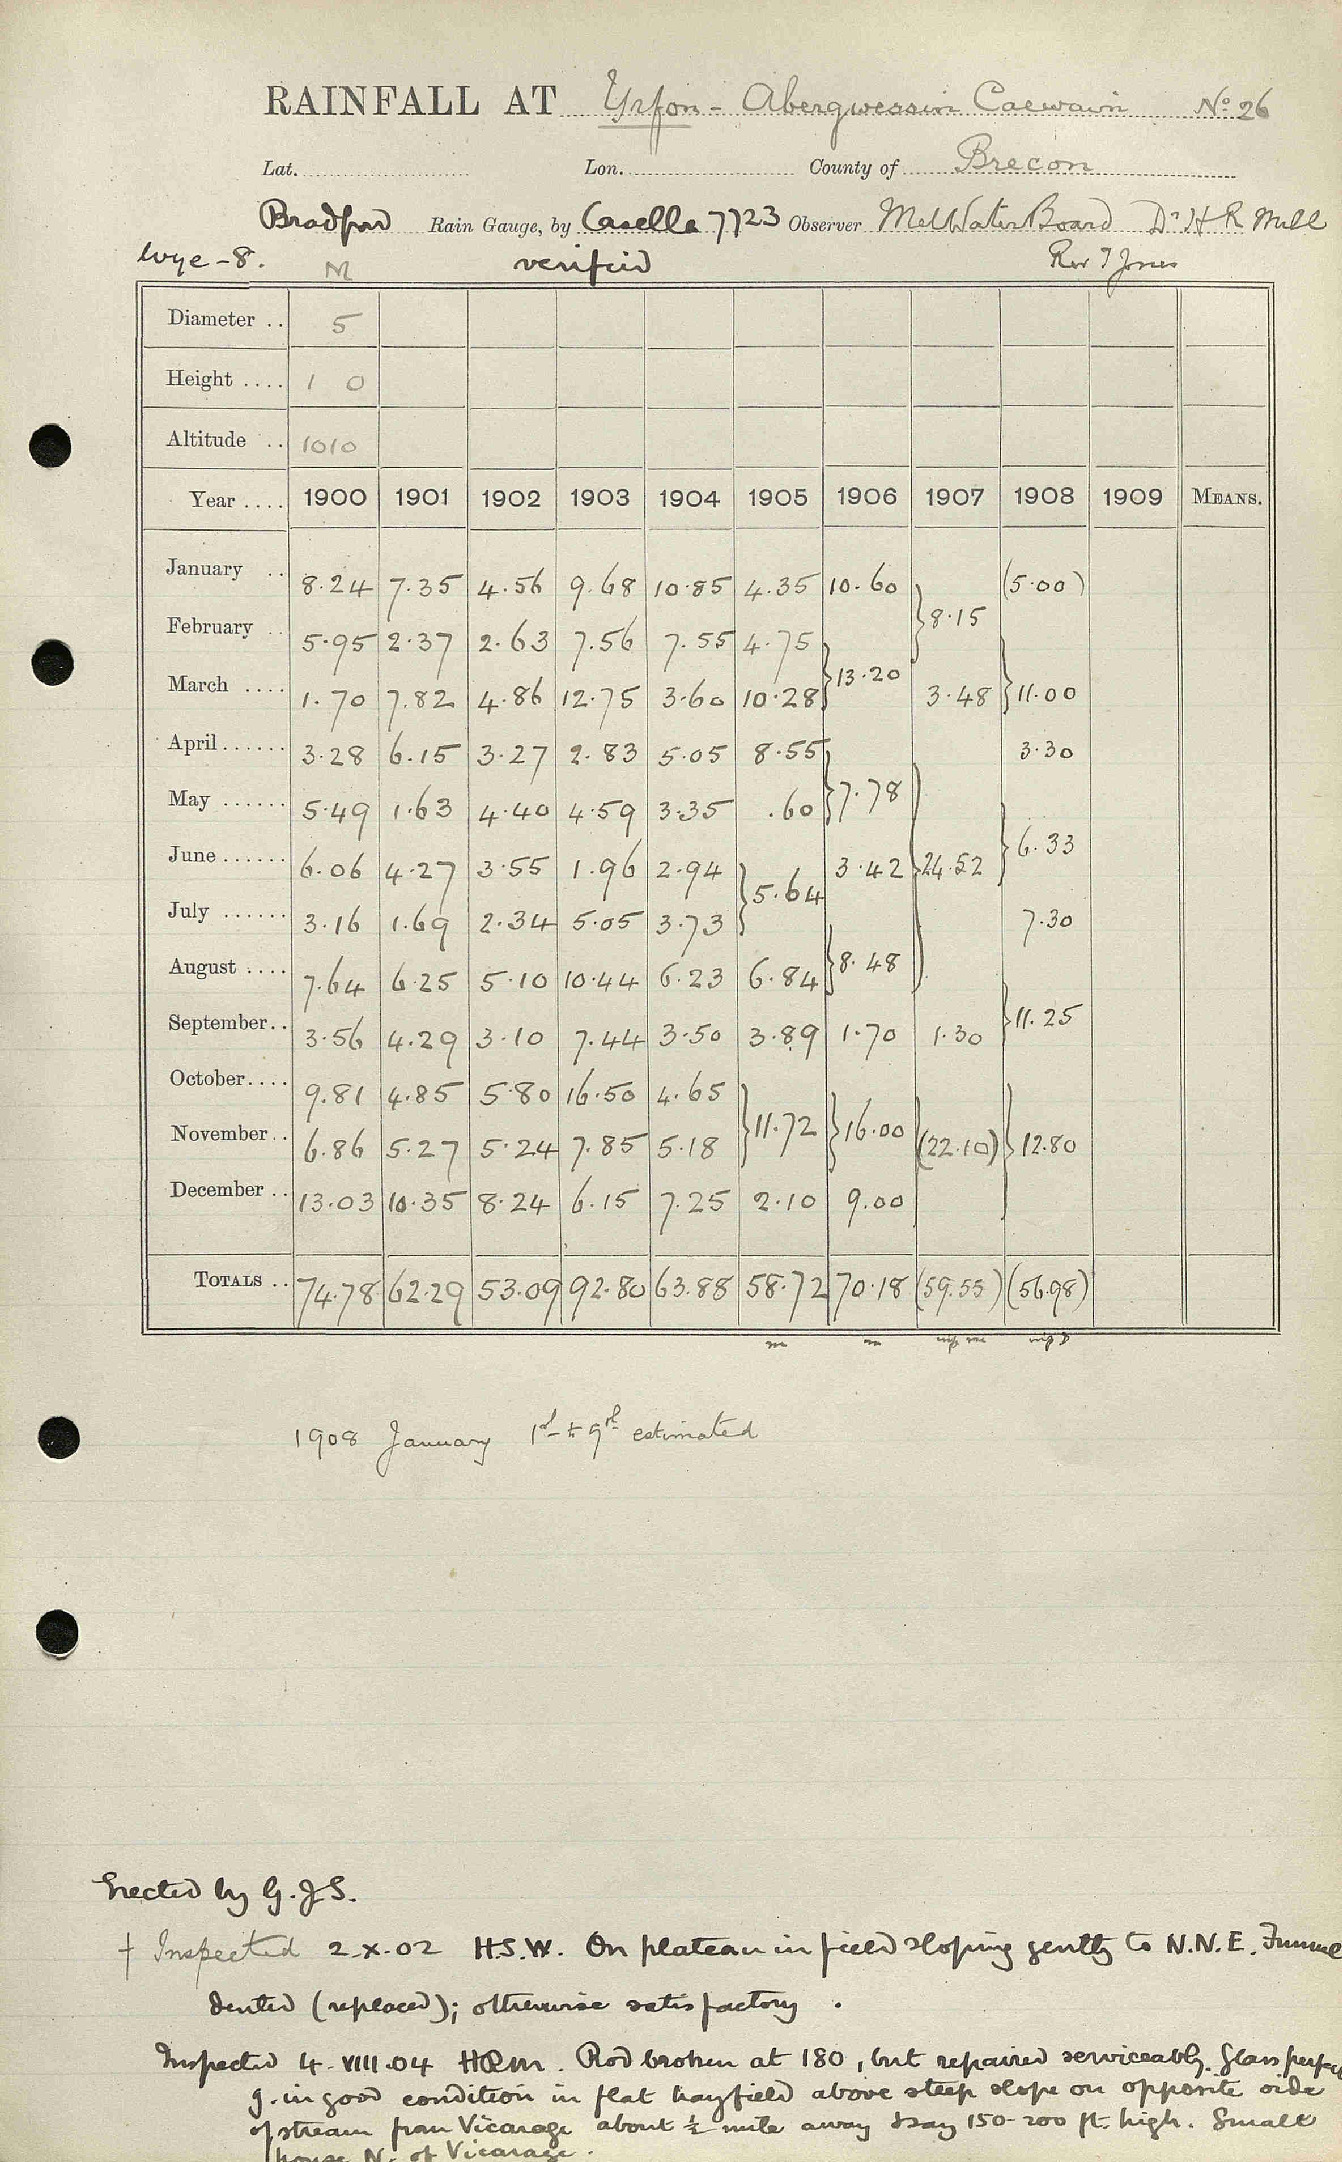 RAINFALL AT Yrfon - Abergwessin Caewain No. 26
Lat. Lon. County of Brecon
Bradford Rain Gauge, by Casella 7723 Observer Met Water Board Dr H R Mill
Wye - 8. M verified Rev T Jones
Diameter .. 5
Height .... 1 0
Altitude .. 1010
Year .... 1900 1901 1902 1903 1904 1905 1906 1907 1908 1909 MEANS.
January .. 8.24 7.35 4.56 9.68 10.85 4.35 10.60 (5.00)
} 8.15
February .. 5.95 2.37 2.63 7.56 7.55 4.75
} 13.20
March .... 1.70 7.82 4.86 12.75 3.60 10.28 3.48 } 11.00
April ...... 3.28 6.15 3.27 2.83 5.05 8.55 3.30
May ...... 5.49 1.63 4.40 4.59 3.35 .60 } 7.78
} 6.33
June ...... 6.06 4.27 3.55 1.96 2.94 3.42 } 24.52
} 5.64
July ...... 3.16 1.69 2.34 5.05 3.73 7.30
August .... 7.64 6.25 5.10 10.44 6.23 6.84 } 8.48
} 11.25
September .. 3.56 4.29 3.10 7.44 3.50 3.89 1.70 1.30
October .... 9.81 4.85 5.80 16.50 4.65
} 11.72 } 16.00
November .. 6.86 5.27 5.24 7.85 5.18 (22.10) } 12.80
December .. 13.03 10.35 8.24 6.15 7.25 2.10 9.00
TOTALS .. 74.78 62.29 53.09 92.80 63.88 58.72 70.18 (59.55) (56.98)
1908 January 1st to 9th estimated
Erected by G.J.S.
† Inspected 2.X.02 H.S.W. On plateau in field sloping gently to N.N.E. Funnel
dented (replaced); otherwise satisfactory .
Inspected 4.VIII.04 HRM. Rod broken at 180, but repaired serviceably. Glass perfect
g. in good condition in flat hayfield above steep slope on opposite side
of stream from Vicarage about ½ mile away & say 150-200 ft. high. Small
house N. of Vicarage.